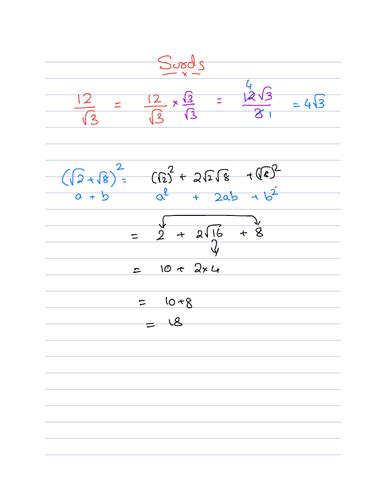 Surds
12/√3 = 12/√3 × √3/√3 = 4 12√3/3 1 = 4√3
(√2+√8)² = (√2)² + 2√2√8 + (√8)²
a + b a² + 2ab + b²
= 2 + 2√16 + 8
= 10 + 2×4
= 10+8
= 18